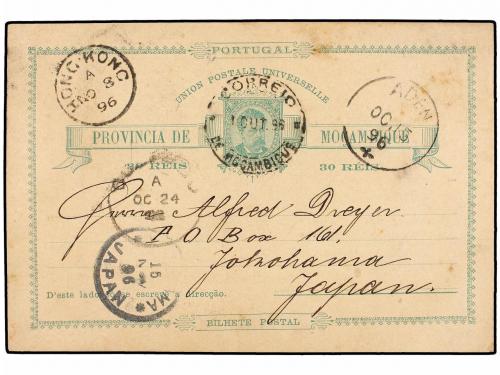 PORTUGAL
UNION POSTALE UNIVERSELLE
PROVINCIA DE MOÇAMBIQUE
30 REIS 30 REIS
HONG-KONG
A
NO 8
96
CORREIO
1 OUT. 96
DE MOÇAMBIQUE
ADEN
OC 15
96
A
OC 24
Herrn Alfred Dreyer
P O Box 161.
Yokohama
Japan.
JAPAN
15
96
D'este lado só se escreve a direcção.
BILHETE POSTAL